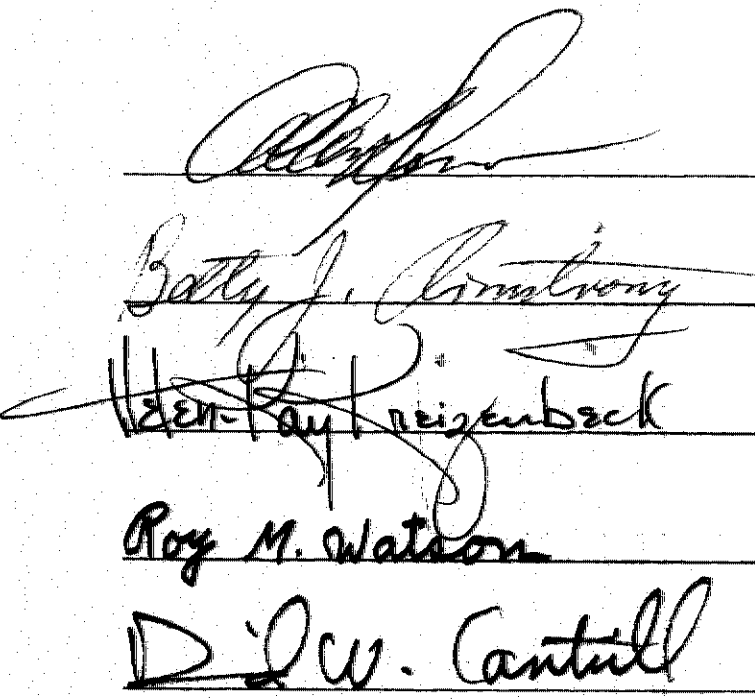 Betty J. Armstrong
Helen-Kay Kreizenbeck
Roy M. Watson
W. Cantrill